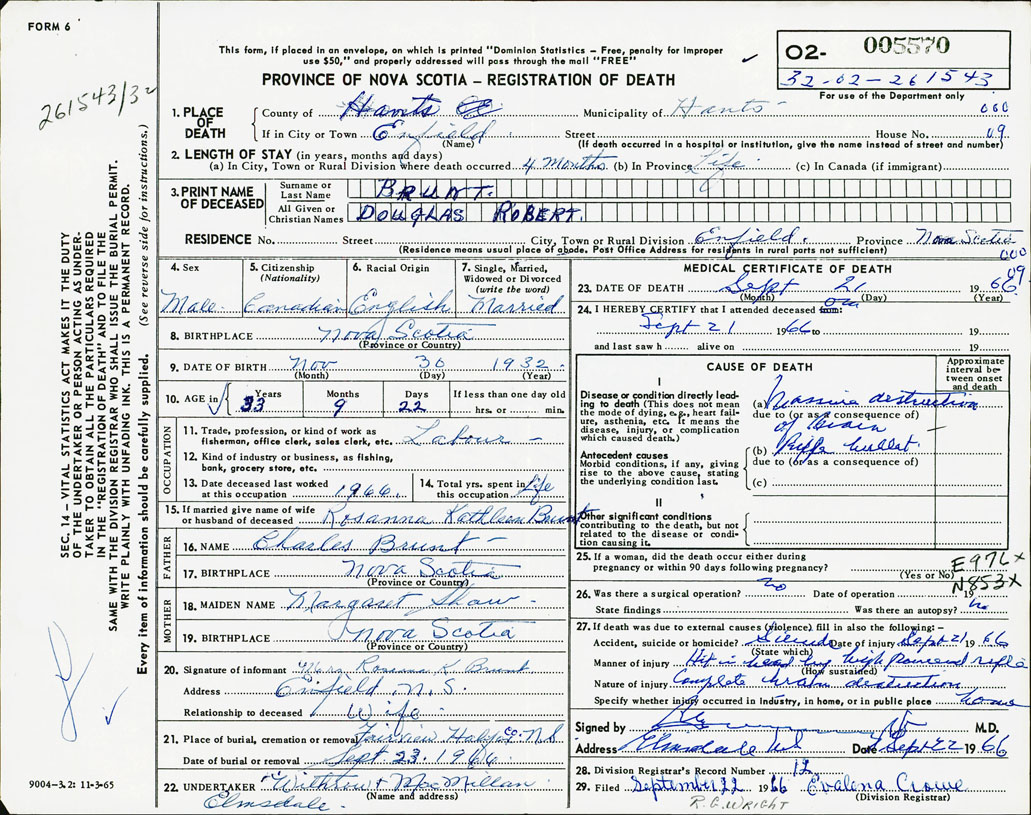 FORM 6
This form, if placed in an envelope, on which is printed "Dominion Statistics – Free, penalty for improper
use $50," and properly addressed will pass through the mail "FREE"
PROVINCE OF NOVA SCOTIA – REGISTRATION OF DEATH
02- 005570
32-02-261543
For use of the Department only
261543/32
1. PLACE OF DEATH
County of Hants
Municipality of Hants
000
If in City or Town Enfield Street House No. 09
(Name) (If death occurred in a hospital or institution, give the name instead of street and number)
2. LENGTH OF STAY (in years, months and days)
(a) In City, Town or Rural Division where death occurred 4 Months (b) In Province Life (c) In Canada (if immigrant)
3. PRINT NAME OF DECEASED
Surname or Last Name BRUNT.
All Given or Christian Names DOUGLAS ROBERT.
RESIDENCE No. Street City, Town or Rural Division Enfield. Province Nova Scotia
(Residence means usual place of abode. Post Office Address for residents in rural parts not sufficient)
000
09
4. Sex Male
5. Citizenship (Nationality) Canadian
6. Racial Origin English
7. Single, Married, Widowed or Divorced (write the word) Married
8. BIRTHPLACE Nova Scotia
(Province or Country)
9. DATE OF BIRTH Nov 30 1932
(Month) (Day) (Year)
10. AGE in Years 33 Months 9 Days 22 If less than one day old hrs. or min.
OCCUPATION
11. Trade, profession, or kind of work as fisherman, office clerk, sales clerk, etc. Labour –
12. Kind of industry or business, as fishing, bank, grocery store, etc.
13. Date deceased last worked at this occupation 1966.
14. Total yrs. spent in this occupation Life
15. If married give name of wife or husband of deceased Rosanna Kathleen Brunt
FATHER
16. NAME Charles Brunt –
17. BIRTHPLACE Nova Scotia
(Province or Country)
MOTHER
18. MAIDEN NAME Margaret Shaw –
19. BIRTHPLACE Nova Scotia
(Province or Country)
20. Signature of informant Mrs. Rosanna K Brunt
Address Enfield, N.S.
Relationship to deceased Wife
21. Place of burial, cremation or removal Fairview Halifax Co. N.S
Date of burial or removal Sept 23, 1966
22. UNDERTAKER Withrow + MacMillan
(Name and address)
Elmsdale.
MEDICAL CERTIFICATE OF DEATH
23. DATE OF DEATH Sept 21 1966
(Month) (Day) (Year)
24. I HEREBY CERTIFY that I attended deceased from: on
Sept 21 1966 to 19
and last saw h alive on 19
CAUSE OF DEATH
Approximate interval between onset and death
I
Disease or condition directly leading to death (This does not mean the mode of dying, e.g., heart failure, asthenia, etc. It means the disease, injury, or complication which caused death.)
(a) Massive destruction
due to (or as a consequence of)
of Brain –
Antecedent causes
Morbid conditions, if any, giving rise to the above cause, stating the underlying condition last.
(b) Rifle bullet
due to (or as a consequence of)
(c)
II
Other significant conditions contributing to the death, but not related to the disease or condition causing it.
25. If a woman, did the death occur either during pregnancy or within 90 days following pregnancy? (Yes or No)
E976X
N853X
26. Was there a surgical operation? no Date of operation 19
State findings Was there an autopsy? no
27. If death was due to external causes (violence) fill in also the following:–
Accident, suicide or homicide? Suicide Date of injury Sept 21 1966
(State which)
Manner of injury Hit in head by high powered rifle
(How sustained)
Nature of injury Complete brain destruction
Specify whether injury occurred in industry, in home, or in public place home
Signed by M.D.
Address Elmsdale NS Date Sept 22 1966
28. Division Registrar's Record Number 12
29. Filed September 22 1966 Evalena Crowe
(Division Registrar)
R.G. WRIGHT
SEC. 14 – VITAL STATISTICS ACT MAKES IT THE DUTY
OF THE UNDERTAKER OR PERSON ACTING AS UNDER-
TAKER TO OBTAIN ALL THE PARTICULARS REQUIRED
IN THE "REGISTRATION OF DEATH" AND TO FILE THE
SAME WITH THE DIVISION REGISTRAR WHO SHALL ISSUE THE BURIAL PERMIT.
WRITE PLAINLY WITH UNFADING INK. THIS IS A PERMANENT RECORD.
Every item of information should be carefully supplied. (See reverse side for instructions.)
9004-3.2: 11-3-65